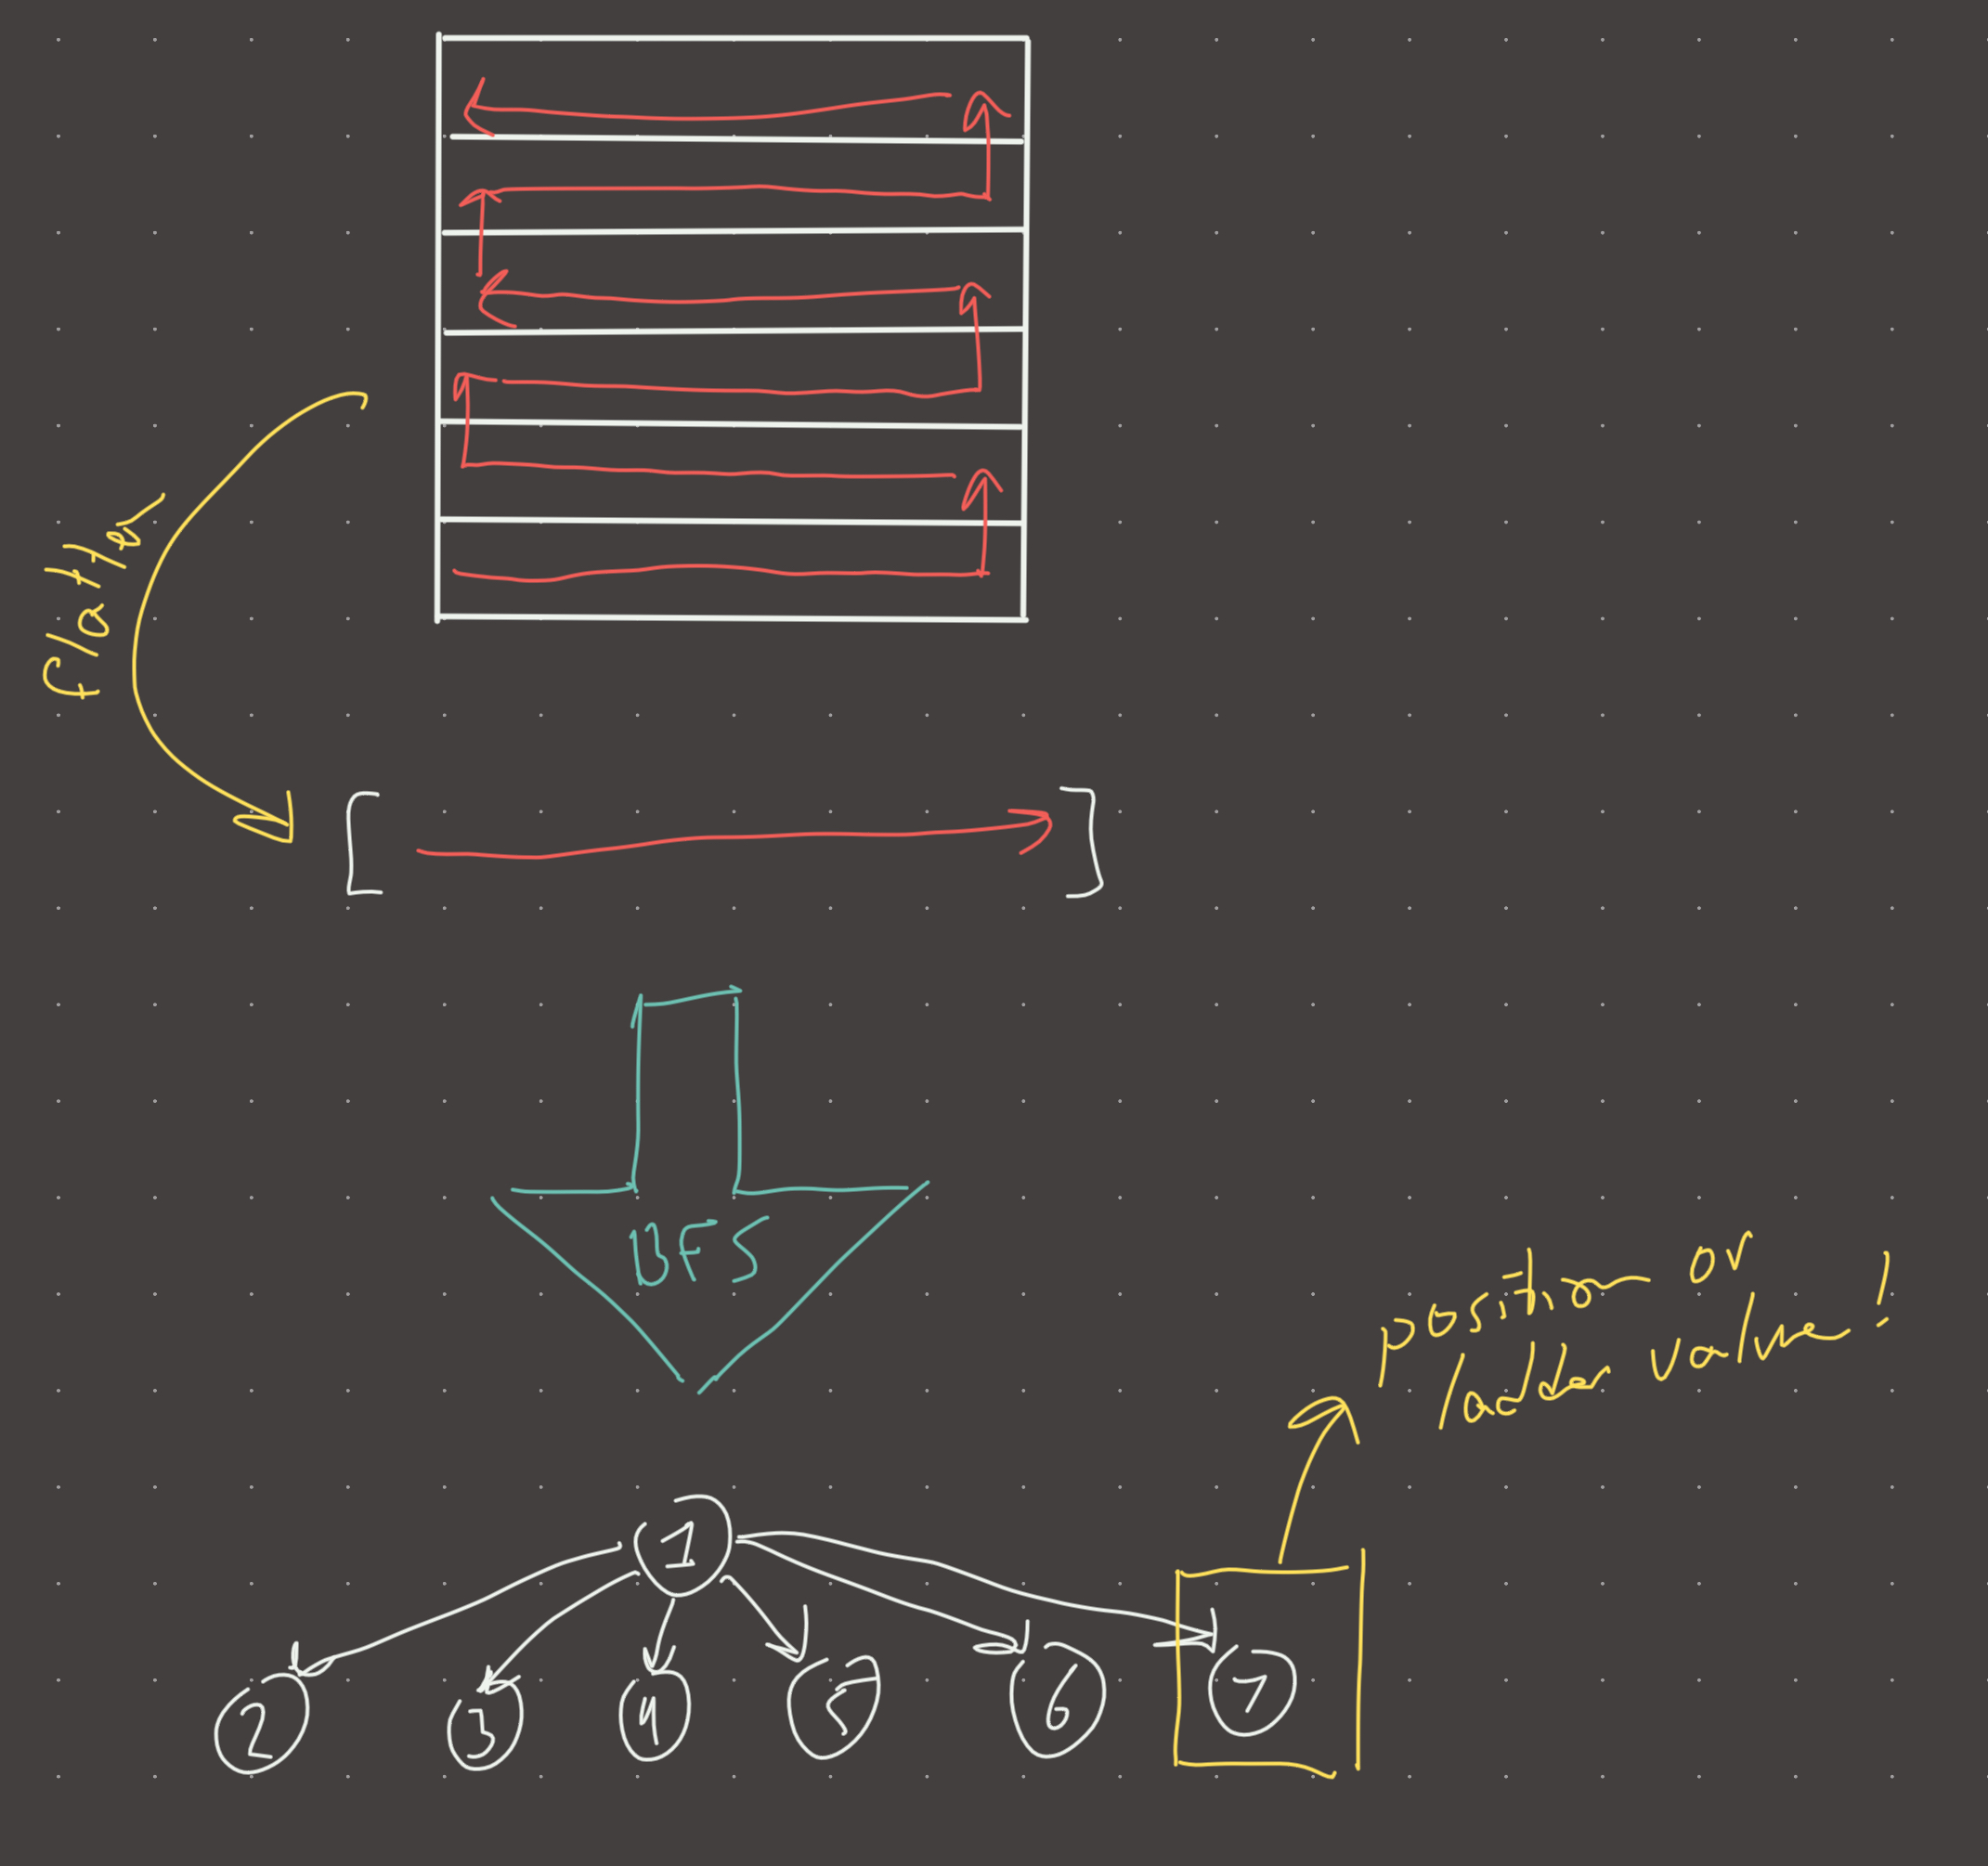 flatten
BFS
position or
ladder value!
1
2
3
4
5
6
7